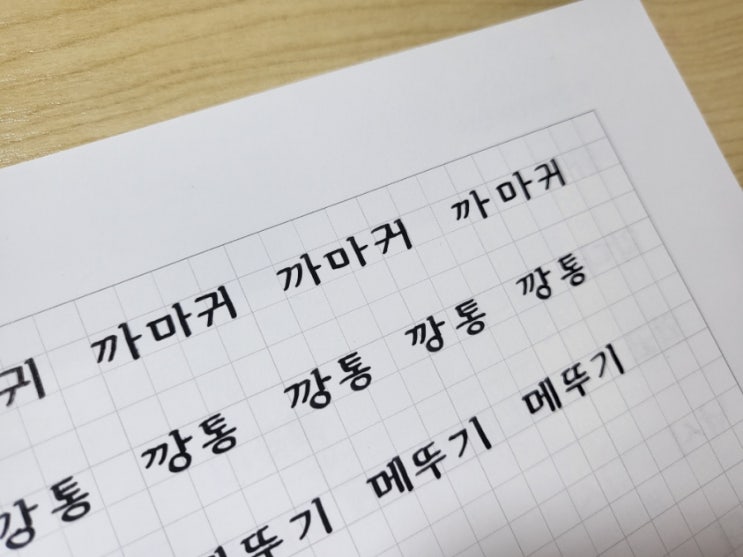 귀 까마귀 까마귀 까마귀
깡통 깡통 깡통 깡통 깡통
뚜기 메뚜기 메뚜기